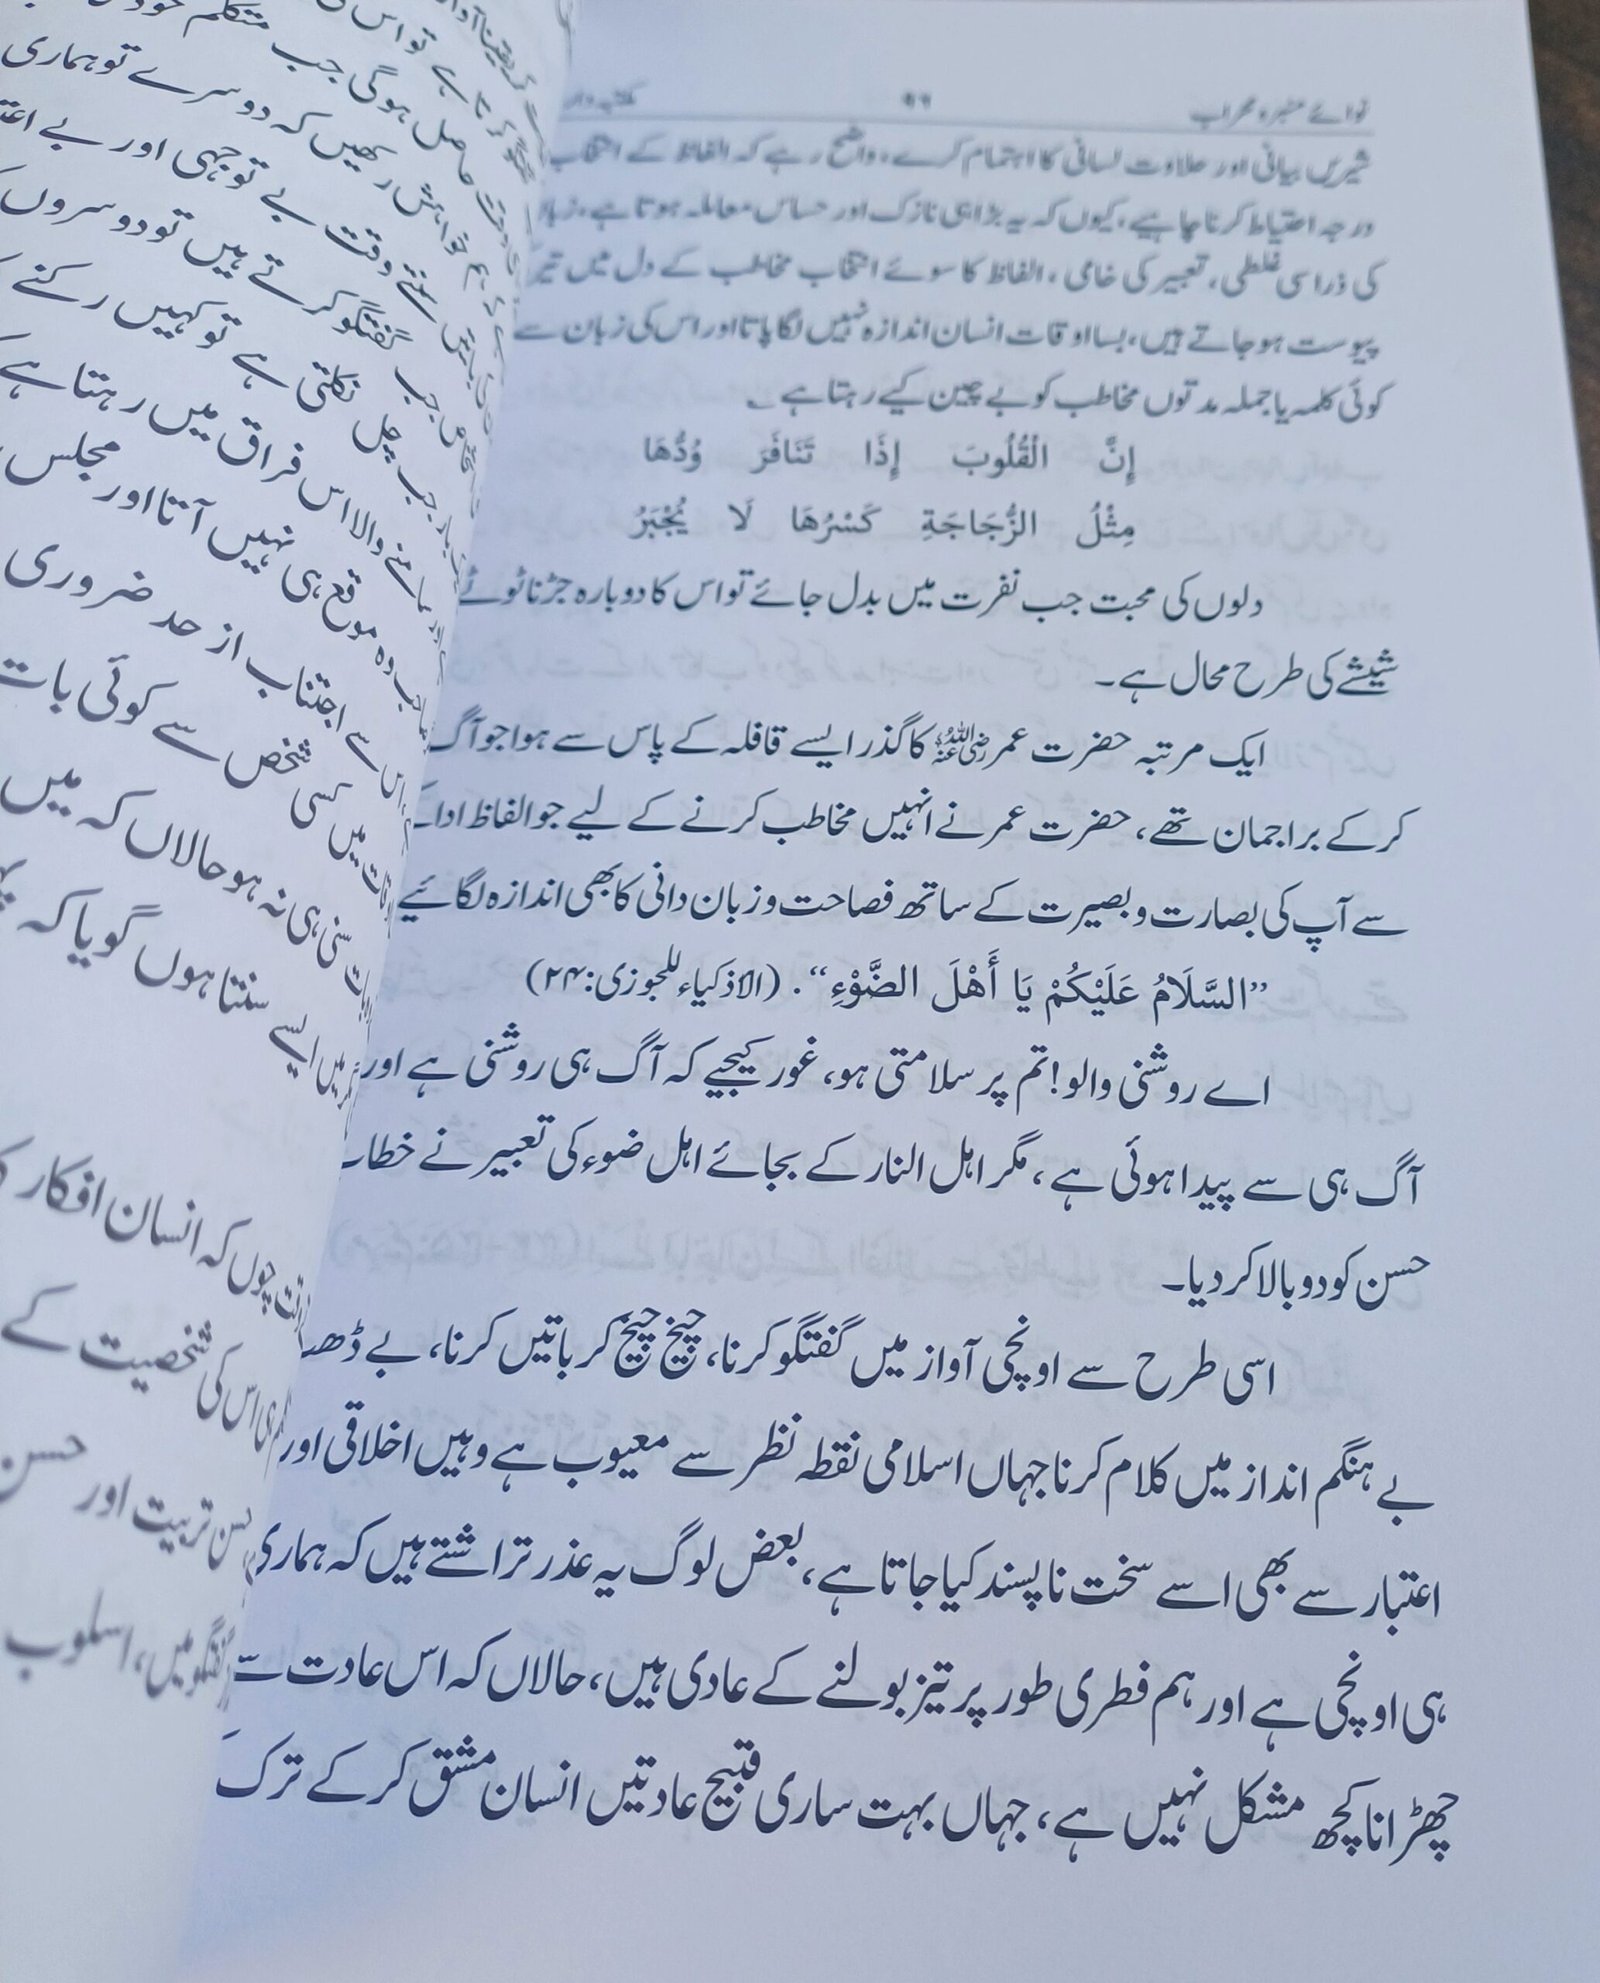 نوائے منبر و محراب
۹۶
مکتبہ دار
شیریں بیانی اور حلاوت لسانی کا اہتمام کرے، واضح رہے کہ الفاظ کے انتخاب
درجہ احتیاط کرنا چاہیے، کیوں کہ یہ بڑا ہی نازک اور حساس معاملہ ہوتا ہے، زبان
کی ذرا سی غلطی، تعبیر کی خامی، الفاظ کا سوئے انتخاب مخاطب کے دل میں تیر
پیوست ہوجاتے ہیں، بسا اوقات انسان اندازہ نہیں لگا پاتا اور اس کی زبان سے
کوئی کلمہ یا جملہ مدتوں مخاطب کو بے چین کیے رہتا ہے ۔
إِنَّ الْقُلُوبَ إِذَا تَنَافَرَ وُدُّهَا
مِثْلُ الزُّجَاجَةِ كَسْرُهَا لَا يُجْبَرُ
دلوں کی محبت جب نفرت میں بدل جائے تو اس کا دوبارہ جڑنا ٹوٹے
شیشے کی طرح محال ہے۔
ایک مرتبہ حضرت عمر رضی اللہ عنہ کا گذر ایسے قافلہ کے پاس سے ہوا جو آگ
کر کے براجمان تھے، حضرت عمر نے انہیں مخاطب کرنے کے لیے جو الفاظ ادا
سے آپ کی بصارت و بصیرت کے ساتھ فصاحت و زبان دانی کا بھی اندازہ لگائیے
”السَّلَامُ عَلَيْكُمْ يَا أَهْلَ الضَّوْءِ“. (الاذکیاء للجوزی: ۲۴)
اے روشنی والو! تم پر سلامتی ہو، غور کیجیے کہ آگ ہی روشنی ہے اور
آگ ہی سے پیدا ہوئی ہے، مگر اہل النار کے بجائے اہل ضوء کی تعبیر نے خطاب
حسن کو دوبالا کر دیا۔
اسی طرح سے اونچی آواز میں گفتگو کرنا، چیخ چیخ کر باتیں کرنا، بے ڈھ
بے ہنگم انداز میں کلام کرنا جہاں اسلامی نقطہ نظر سے معیوب ہے وہیں اخلاقی اور
اعتبار سے بھی اسے سخت ناپسند کیا جاتا ہے، بعض لوگ یہ عذر تراشتے ہیں کہ ہماری
ہی اونچی ہے اور ہم فطری طور پر تیز بولنے کے عادی ہیں، حالاں کہ اس عادت سے
چھڑانا کچھ مشکل نہیں ہے، جہاں بہت ساری قبیح عادتیں انسان مشق کر کے ترک
دوسرے تو ہماری
خواہش رکھیں کہ
وقت بے توجہی اور بے
گفتگو کرتے ہیں تو دوسروں
جب چل نکلتی ہے تو کہیں رکنے
والا اس فراق میں رہتا ہے
وہ موقع ہی نہیں آتا اور مجلس
سے اجتناب از حد ضروری
میں کسی شخص سے کوئی بات
سنی ہی نہ ہو حالاں کہ میں
میں ایسے سنتا ہوں گویا کہ
چوں کہ انسان افکار
ہی اس کی شخصیت کے
حسن تربیت اور حسن
گفتگو میں، اسلوب